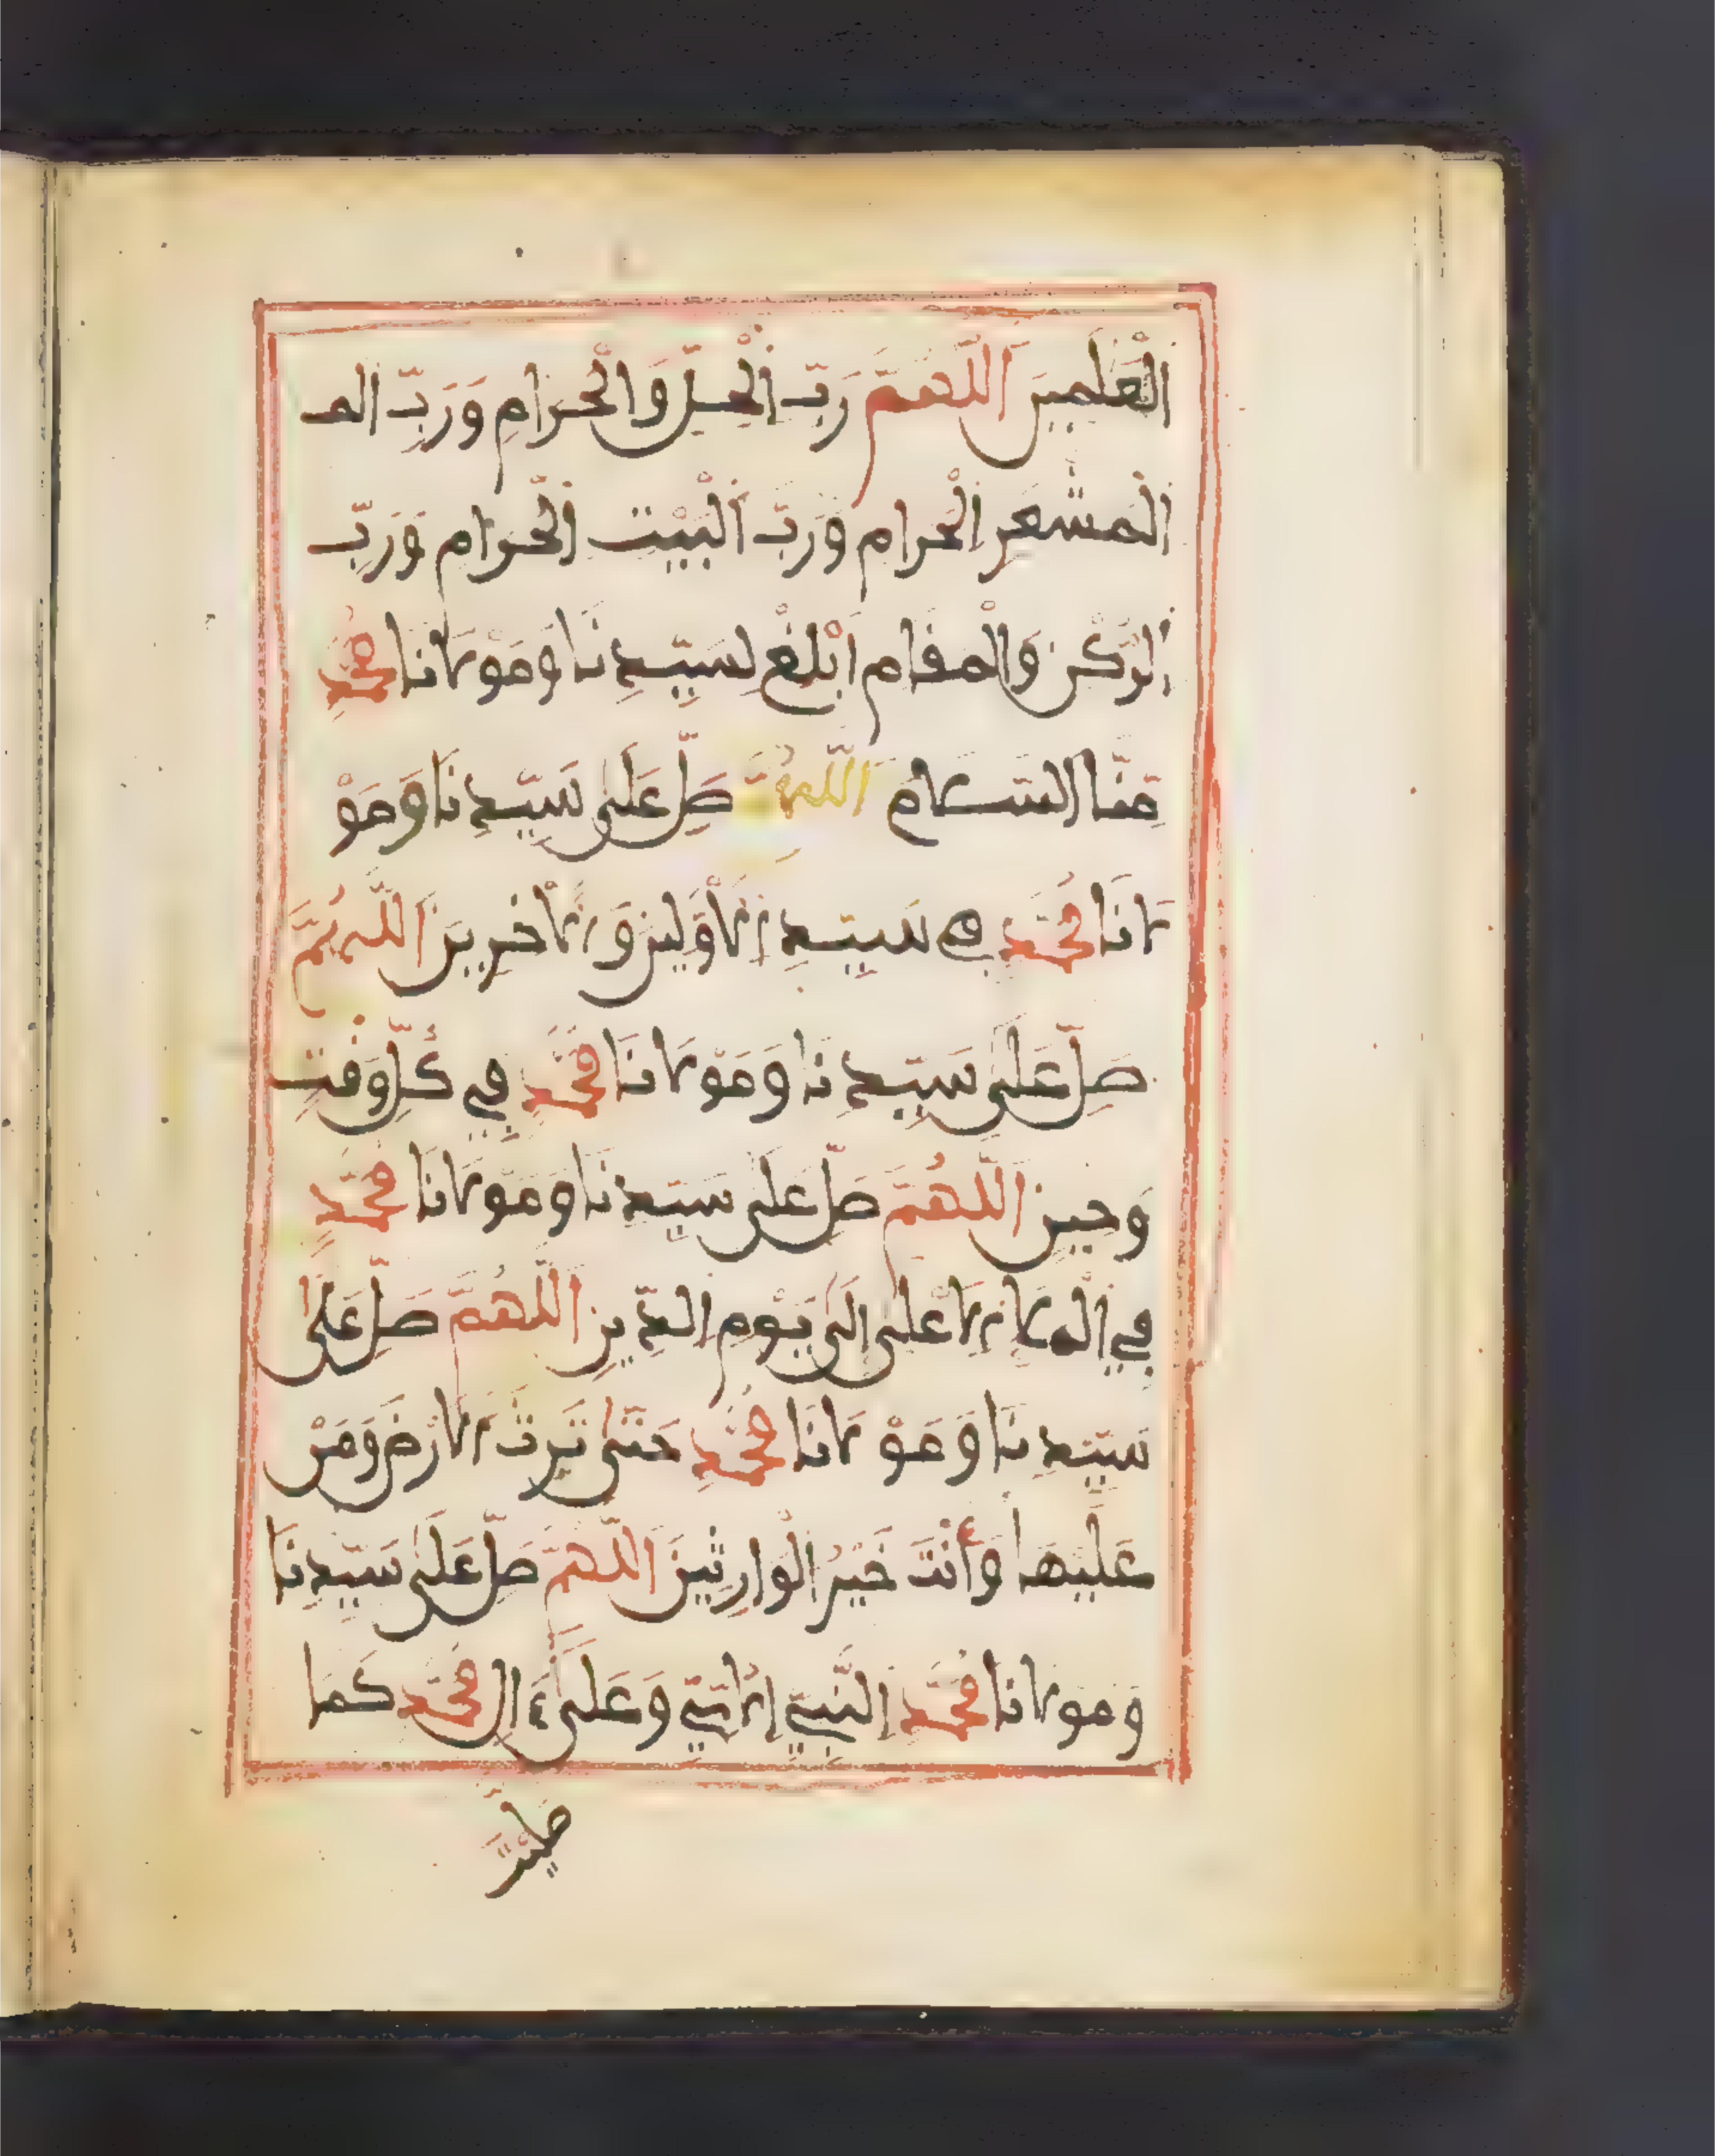 الْعَلَمِينَ اَللَّهُمَّ رَبَّ اَلْحِلِّ وَالْحَرَامِ وَرَبِّ المـ
اَلْمَشْعَرِ اِلْحَرَامِ وَرَبَّ اَلْبَيْتِ اِلْحَرَامِ وَرَبِّ
اِلرُّكْنِ وَالْمَقَامِ اَبْلِغْ لِسَيِّدِنَا وَمَوْلَانَا مُحَمَّدٍ
مِّنَّا السَّلَامَ اَللَّهُمَّ صَلِّ عَلَى سَيِّدِنَا وَمَوْ
لَانَا مُحَمَّدٍ سَيِّدِ اِلَاوَّلِينَ وَالَاخِرِينَ اَللَّهُمَّ
صَلِّ عَلَى سَيِّدِنَا وَمَوْلَانَا مُحَمَّدٍ فِي كُلِّ وَقْتٍ
وَحِينٍ اَللَّهُمَّ صَلِّ عَلَى سَيِّدِنَا وَمَوْلَانَا مُحَمَّدٍ
فِي اِلْمَلَإِ اِلَاعْلَى إِلَى يَوْمِ الدِّينِ اَللَّهُمَّ صَلِّ عَلَى
سَيِّدِنَا وَمَوْلَانَا مُحَمَّدٍ حَتَّى تَرِثَ اَلَارْضَ وَمَنْ
عَلَيْهَا وَأَنْتَ خَيْرُ الْوَارِثِينَ اَللَّهُمَّ صَلِّ عَلَى سَيِّدِنَا
وَمَوْلَانَا مُحَمَّدٍ اِلنَّبِيِّ اِلُامِّيِّ وَعَلَى ءَالِ مُحَمَّدٍ كَمَا
صَلَّيْتَ